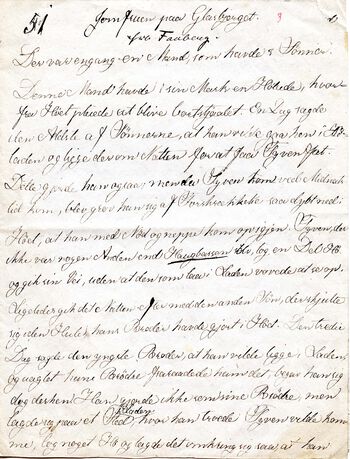 51
Jomfruen paa Glasbjerget.
fra Faaborg.
Der var engang en Mand, som havde 3 Sønner.
Denne Mand havde i sin Mark en Hølade, hvor-
fra Høet pleiede at blive bortstjaalet. En Dag sagde
den Ældste af Sønnerne, at han vilde gaae hen i Hø-
laden og ligge der om Natten for at faae Tyven fat.
Dette gjorde han ogsaa, men da Tyven kom ved Midnats-
tid kom, blev han saa dybt ned i
Høet, at han med Nød og neppe kom op igjen. Tyven, der
ikke var nogen Anden end Haugbassen selv, tog en Del Hø
og gik sin Vei, uden at den som laae i Laden vovede at see op.
Ligeledes gik det Natten efter med den anden Søn, der skjulte
sig i den Hule, hans Broder havde gjort i Høet. Den tredie
Dag sagde den yngste Broder, at han vilde ligge i Laden
og uagtet hans Brødre fraraadede ham det, begav han sig
dog derhen. Han gjorde ikke som sine Brødre, men
lagde sig paa et Sted i Laden, hvor han troede Tyven vilde kom-
me, tog noget Hø og lagde det omkring sig saa, at han